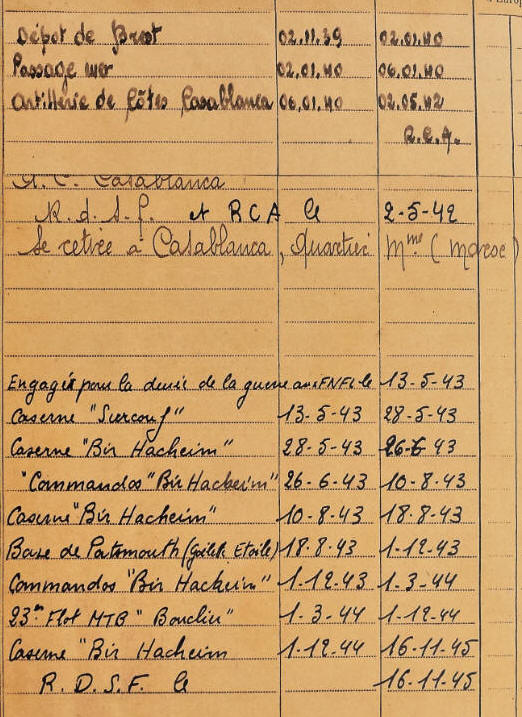 Dépôt de Brest 02.11.39 02.01.40
Passage mer 02.01.40 06.01.40
Artillerie de Côtes Casablanca 06.01.40 02.05.42
R.C.A.
A. C. Casablanca
R.d.S.F. et RCA le 2-5-42
Se retire à Casablanca, Quartier Mme (Maroc)
Engagé pour la durée de la guerre aux FNFL le 13-5-43
Caserne "Surcouf" 13-5-43 28-5-43
Caserne "Bir Hacheim" 28-5-43 26-6-43
"Commandos "Bir Hacheim" 26-6-43 10-8-43
Caserne "Bir Hacheim" 10-8-43 18.8-43
Base de Portsmouth ( Etoile) 18.8-43 1-12-43
Commandos "Bir Hacheim" 1-12-43 1-3-44
23me Flot MTB 1-3-44 1-12-44
Caserne "Bir Hacheim 1-12-44 16-11-45
R.D.S.F. le 16-11-45